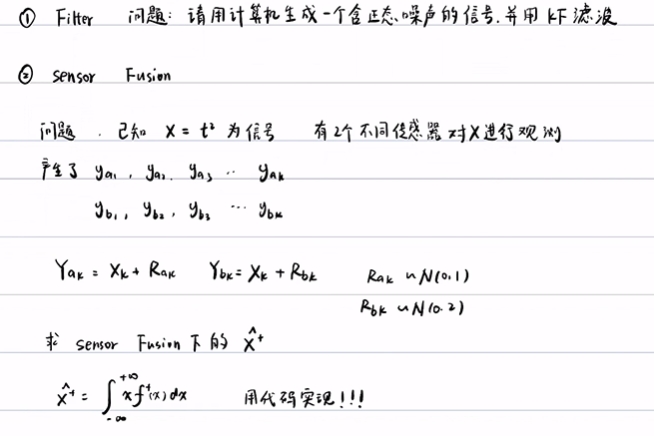 ① Filter 问题: 请用计算机生成一个含正态噪声的信号.并用 KF 滤波
② Sensor Fusion
问题. 已知 X = t² 为信号 有2个不同传感器对X进行观测
产生了 ya₁, ya₂, ya₃ ·· yaₖ
yb₁, yb₂, yb₃ ··· ybₖ
Yaₖ = Xₖ + Raₖ Ybₖ = Xₖ + Rbₖ Raₖ ~ N(0.1)
Rbₖ ~ N(0.2)
求 Sensor Fusion 下的 x̂⁺
x̂⁺ = ∫₋∞⁺∞ x f⁺(x) dx 用代码实现!!!